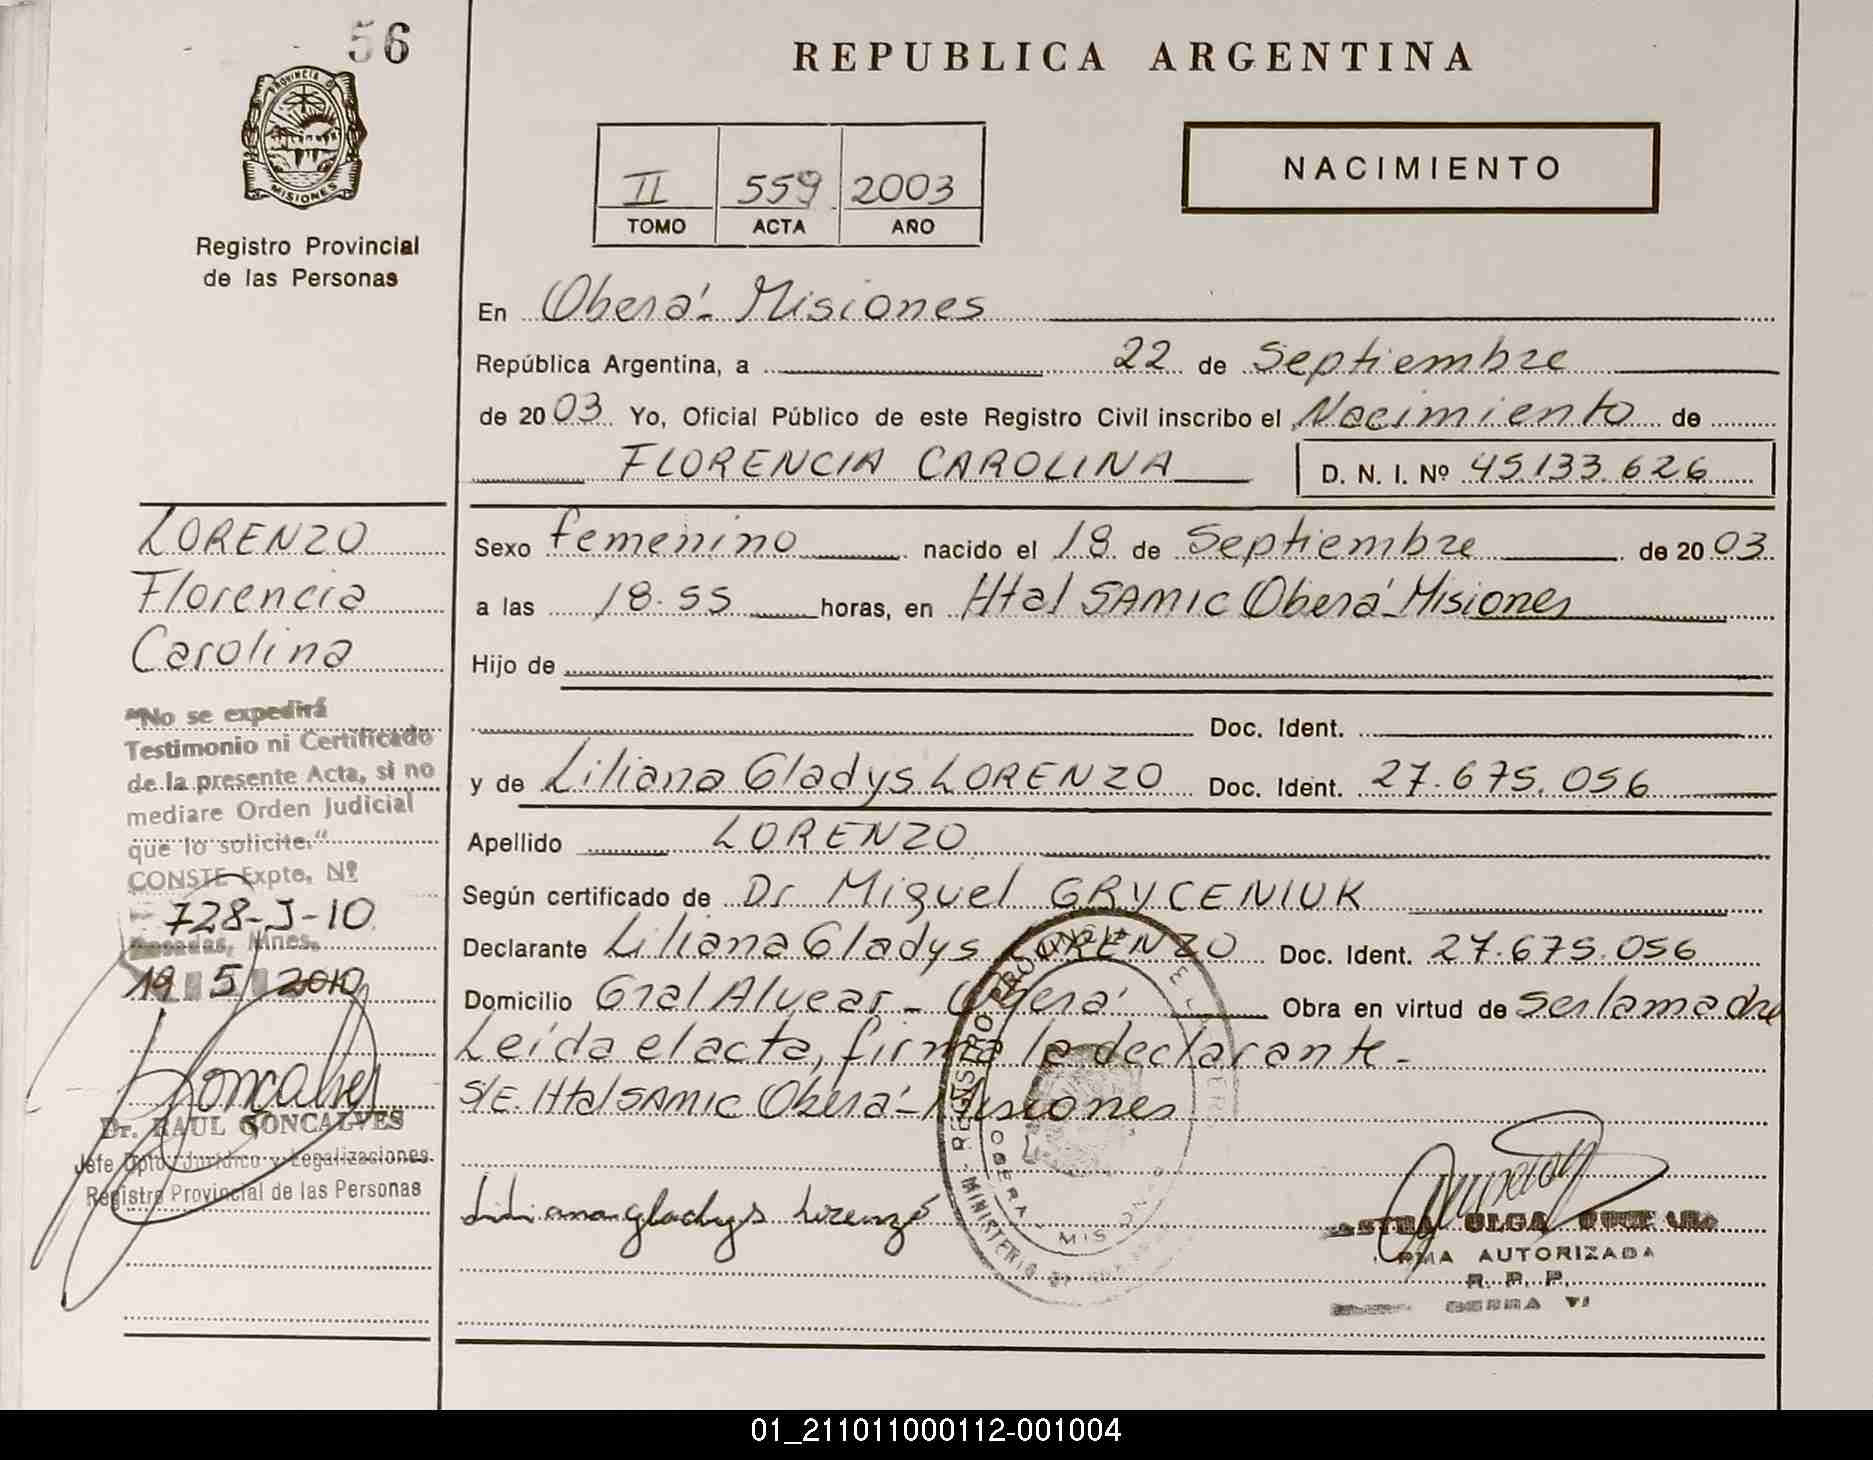 56
PROVINCIA DE
MISIONES
Registro Provincial
de las Personas
REPUBLICA ARGENTINA
II 559 2003
TOMO ACTA AÑO
NACIMIENTO
En Oberá - Misiones
República Argentina, a 22 de Septiembre
de 2003 Yo, Oficial Público de este Registro Civil inscribo el Nacimiento de
FLORENCIA CAROLINA D. N. I. Nº 45.133.626
LORENZO
Florencia
Carolina
"No se expedirá
Testimonio ni Certificado
de la presente Acta, si no
mediare Orden Judicial
que lo solicite."
CONSTE Expte. Nº
728-J-10
Posadas, Mnes.
19 5 2010
Dr. RAUL GONCALVES
Jefe Dpto. Jurídico y Legalizaciones
Registro Provincial de las Personas
Sexo femenino nacido el 18 de Septiembre de 2003
a las 18.55 horas, en Htal SAMIC Oberá - Misiones
Hijo de
Doc. Ident.
y de Liliana Gladys LORENZO Doc. Ident. 27.675.056
Apellido LORENZO
Según certificado de Dr Miguel GRYCENIUK
Declarante Liliana Gladys LORENZO Doc. Ident. 27.675.056
Domicilio Gral Alvear - Oberá Obra en virtud de ser la madre
Leída el acta, firma la declarante.-
S/E. Htal SAMIC Oberá - Misiones
Liliana gladys Lorenzo
REGISTRO PROVINCIAL DE
MINISTERIO
OBERA MISIONES
OLGA
AUTORIZADA
R. P. P.
01_211011000112-001004